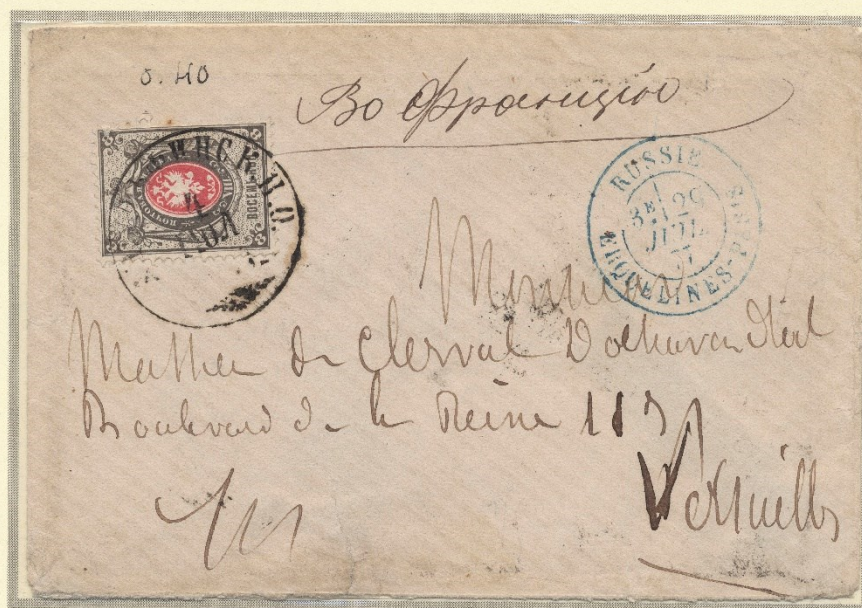 0.40
Во Францію
RUSSIE
3E 29
JUIL
ERQUELINES-PARIS
ІЮЛ
ВОСЕМЬ
Monsieur
Mathieu de Clerval
Boulevard de la Reine 113
Versailles